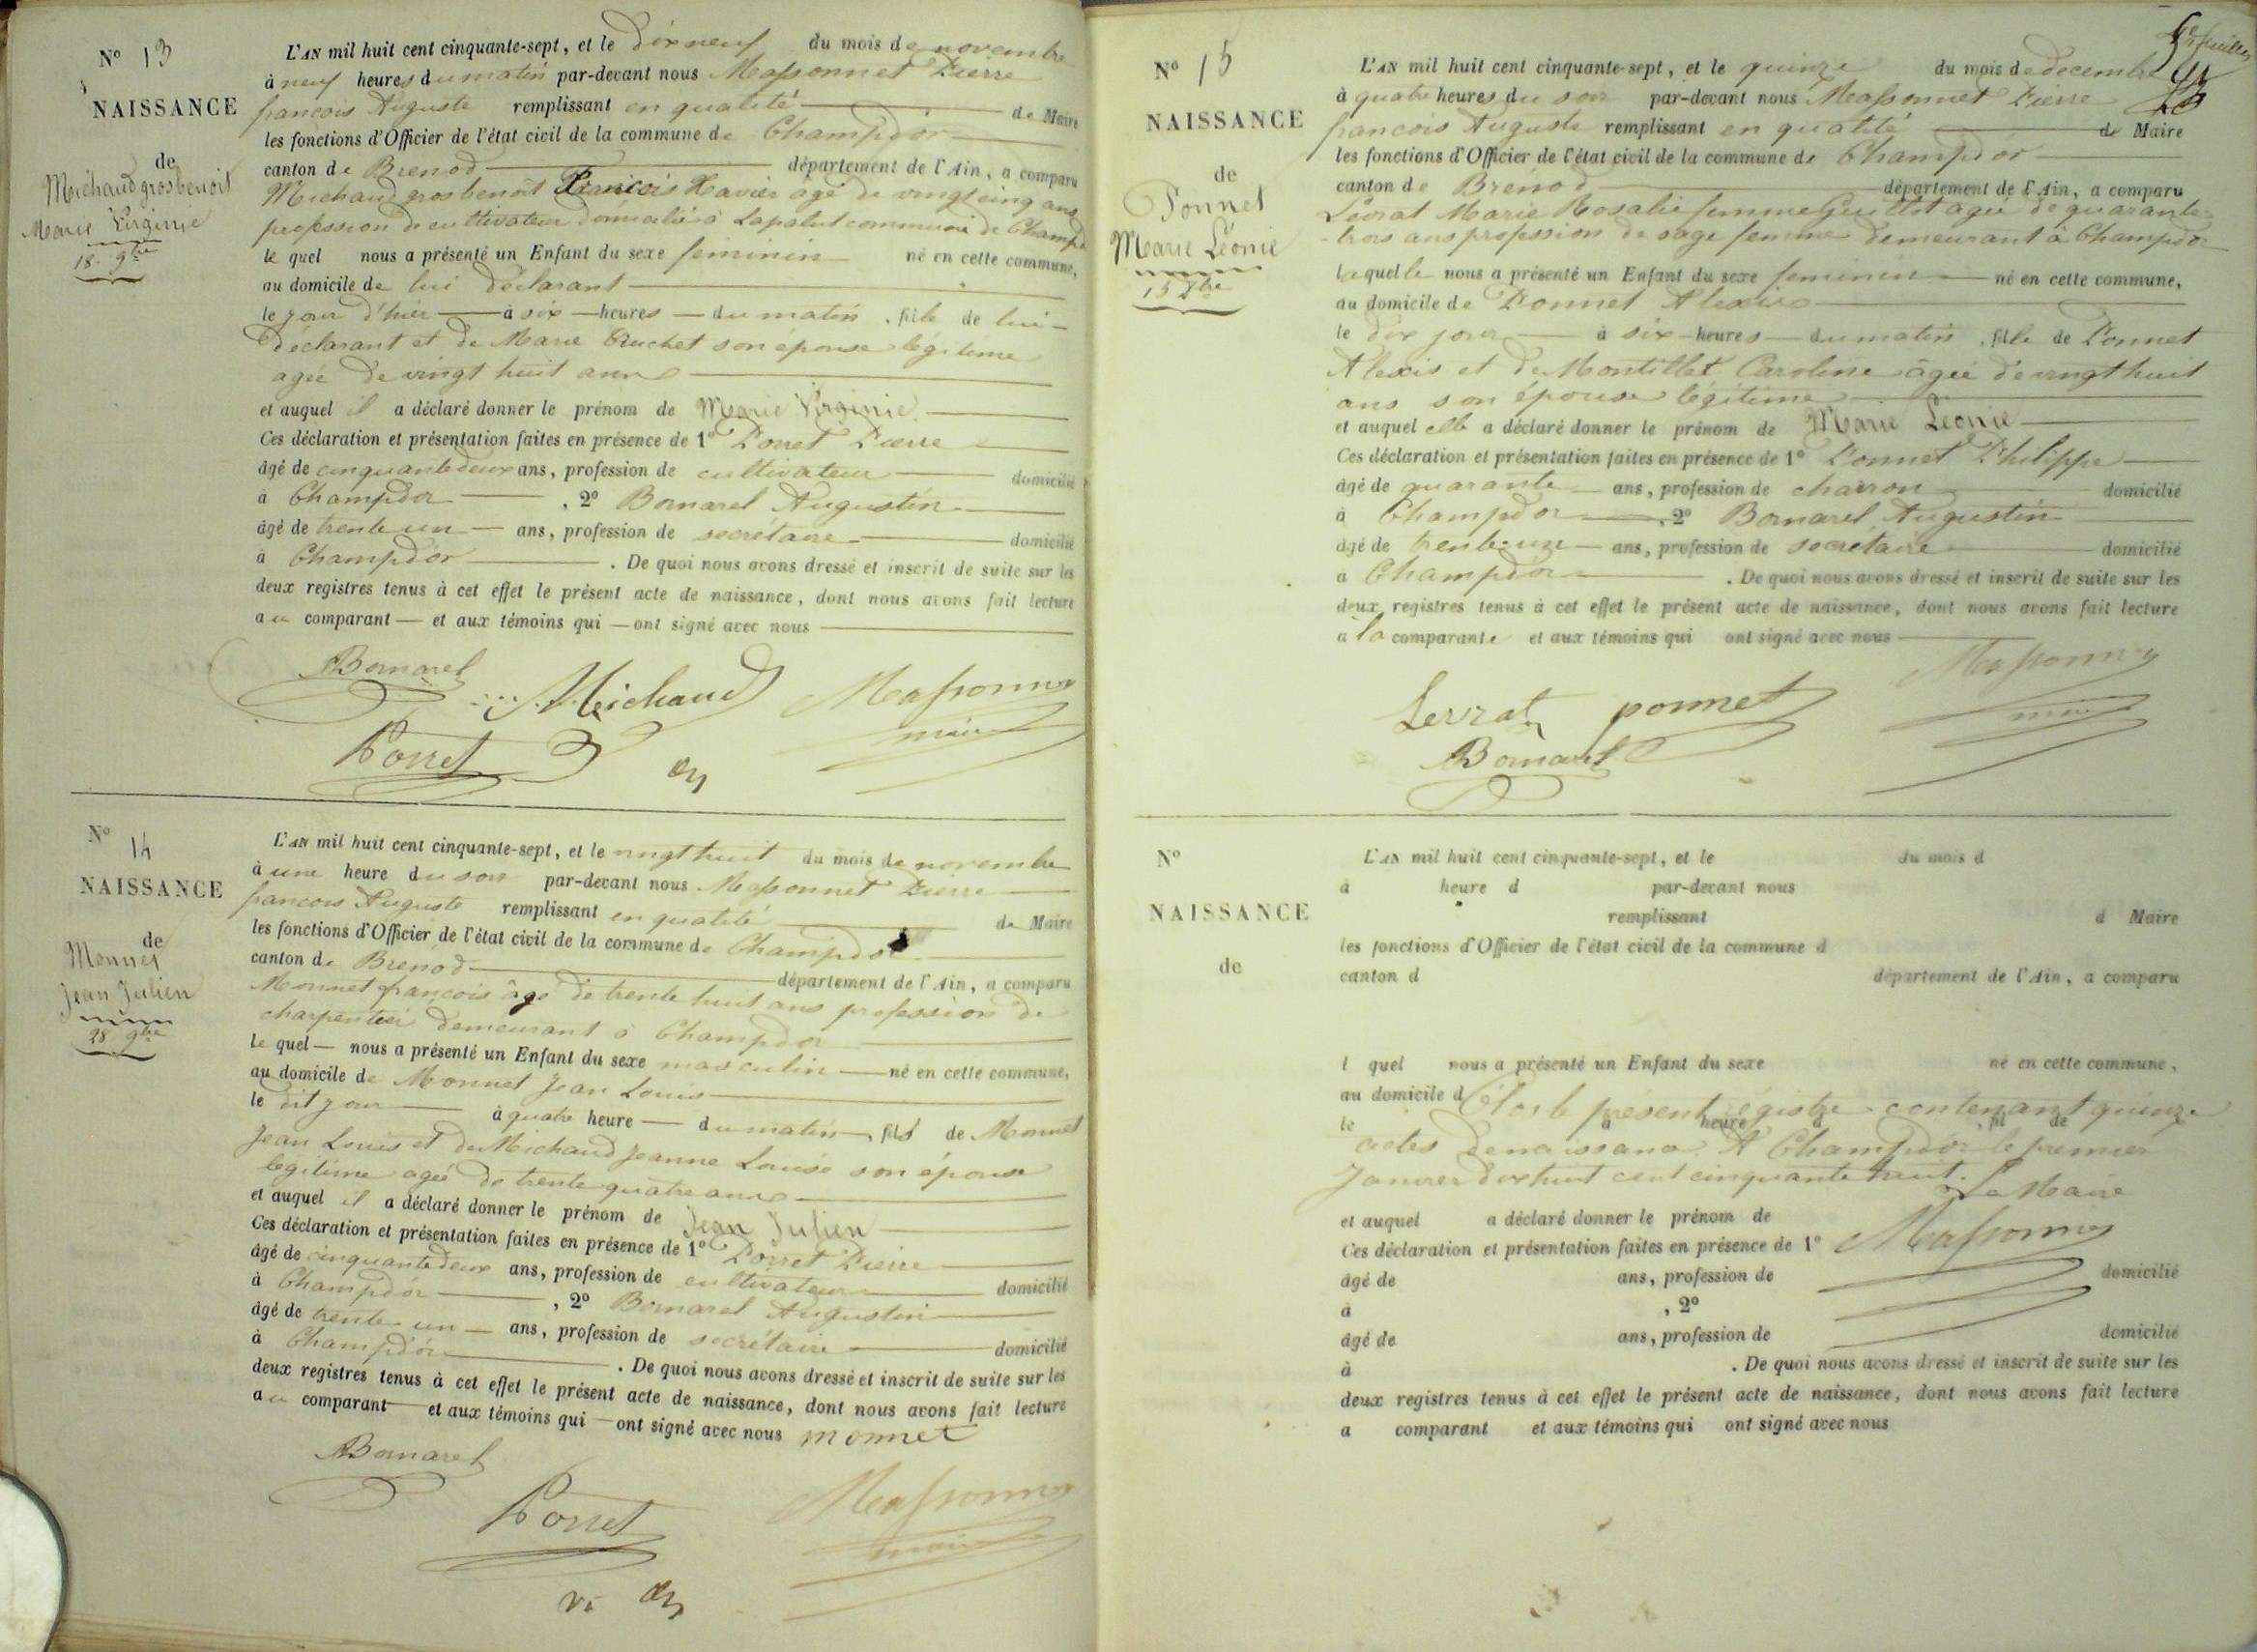 N° 13
NAISSANCE
de
Michaud grosbenoit
Marie Virginie
18. 9bre
L'AN mil huit cent cinquante-sept, et le dix neuf du mois de novembre
à neuf heures du matin par-devant nous Massonnet Pierre
francois Auguste remplissant en qualité de Maire
les fonctions d'Officier de l'état civil de la commune de Champdor
canton de Brenod département de l'Ain, a comparu
Michaud grosbenoit François Xavier agé de vingt cinq ans
profession de cultivateur domicilié à Lapalut commune de Champd
le quel nous a présenté un Enfant du sexe feminin né en cette commune,
au domicile de lui déclarant
le jour d'hier à six heures du matin, fille de lui
déclarant et de Marie Bruchet son épouse légitime
agée de vingt huit ans
et auquel il a déclaré donner le prénom de Marie Virginie
Ces déclaration et présentation faites en présence de 1° Porret Pierre
âgé de cinquante deux ans, profession de cultivateur domicilié
à Champdor, 2° Bornarel Augustin
âgé de trente un ans, profession de secrétaire domicilié
à Champdor. De quoi nous avons dressé et inscrit de suite sur les
deux registres tenus à cet effet le présent acte de naissance, dont nous avons fait lecture
au comparant et aux témoins qui ont signé avec nous
Bornarel Michaud Massonnet
maire
Porret
N° 14
NAISSANCE
de
Monnet
Jean Julien
28. 9bre
L'AN mil huit cent cinquante-sept, et le vingt huit du mois de novembre
à une heure du soir par-devant nous Massonnet Pierre
francois Auguste remplissant en qualité de Maire
les fonctions d'Officier de l'état civil de la commune de Champdor
canton de Brenod département de l'Ain, a comparu
Monnet françois âgé de trente huit ans profession de
charpentier demeurant à Champdor
le quel nous a présenté un Enfant du sexe masculin né en cette commune,
au domicile de Monnet Jean Louis
le dit jour à quatre heure du matin, fils de Monnet
Jean Louis et de Michaud Jeanne Louise son épouse
légitime agée de trente quatre ans
et auquel il a déclaré donner le prénom de Jean Julien
Ces déclaration et présentation faites en présence de 1° Porret Pierre
âgé de cinquante deux ans, profession de cultivateur domicilié
à Champdor, 2° Bornarel Augustin
âgé de trente un ans, profession de secrétaire domicilié
à Champdor. De quoi nous avons dressé et inscrit de suite sur les
deux registres tenus à cet effet le présent acte de naissance, dont nous avons fait lecture
au comparant et aux témoins qui ont signé avec nous monnet
Bornarel
Porret Massonnet
maire
N° 15
NAISSANCE
de
Ponnet
Marie Léonie
15 Xbre
L'AN mil huit cent cinquante-sept, et le quinze du mois de decembre
à quatre heures du soir par-devant nous Massonnet Pierre
francois Auguste remplissant en qualité de Maire
les fonctions d'Officier de l'état civil de la commune de Champdor
canton de Brénod département de l'Ain, a comparu
Levrat Marie Rosalie femme Guillot agée de quarante
trois ans profession de sage femme demeurant à Champdor
laquelle nous a présenté un Enfant du sexe feminin né en cette commune,
au domicile de Ponnet Alexis
le dix jour à six heures du matin, fille de Ponnet
Alexis et de Montillet Caroline âgée de vingt huit
ans son épouse légitime
et auquel elle a déclaré donner le prénom de Marie Leonie
Ces déclaration et présentation faites en présence de 1° Ponnet Philippe
âgé de quarante ans, profession de charron domicilié
à Champdor, 2° Bornarel Augustin
âgé de trente-un ans, profession de secretaire domicilié
à Champdor. De quoi nous avons dressé et inscrit de suite sur les
deux registres tenus à cet effet le présent acte de naissance, dont nous avons fait lecture
a la comparante et aux témoins qui ont signé avec nous
Massonnet
Levrat ponnet maire
Bornarel
N°
NAISSANCE
de
L'AN mil huit cent cinquante-sept, et le du mois d
à heure d par-devant nous
remplissant d Maire
les fonctions d'Officier de l'état civil de la commune d
canton d département de l'Ain, a comparu
l quel nous a présenté un Enfant du sexe né en cette commune,
au domicile d
Clos le présent régistre contenant quinze
le à heure d, fil de
actes de naissance. A Champdor le premier
Janvier dix huit cent cinquante huit. Le Maire
et auquel a déclaré donner le prénom de
Massonnet
Ces déclaration et présentation faites en présence de 1°
âgé de ans, profession de domicilié
à , 2°
âgé de ans, profession de domicilié
à . De quoi nous avons dressé et inscrit de suite sur les
deux registres tenus à cet effet le présent acte de naissance, dont nous avons fait lecture
a comparant et aux témoins qui ont signé avec nous